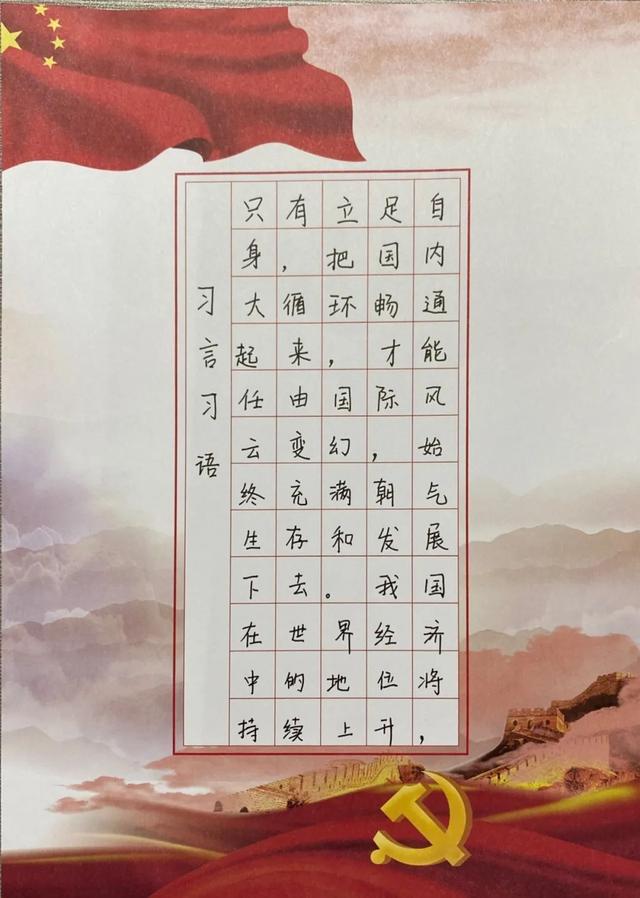 习言习语
只有立足自
身，把国内
大循环畅通
起来，才能
任由国际风
云变幻，始
终充满朝气
生存和发展
下去。我国
在世界经济
中的地位将
持续上升，